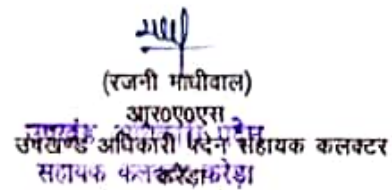 (रजनी माधीवाल)
आर०ए०एस
उपखण्ड अधिकारी पदेन सहायक कलक्टर
सहायक कलक्टर करेड़ा
करेड़ा